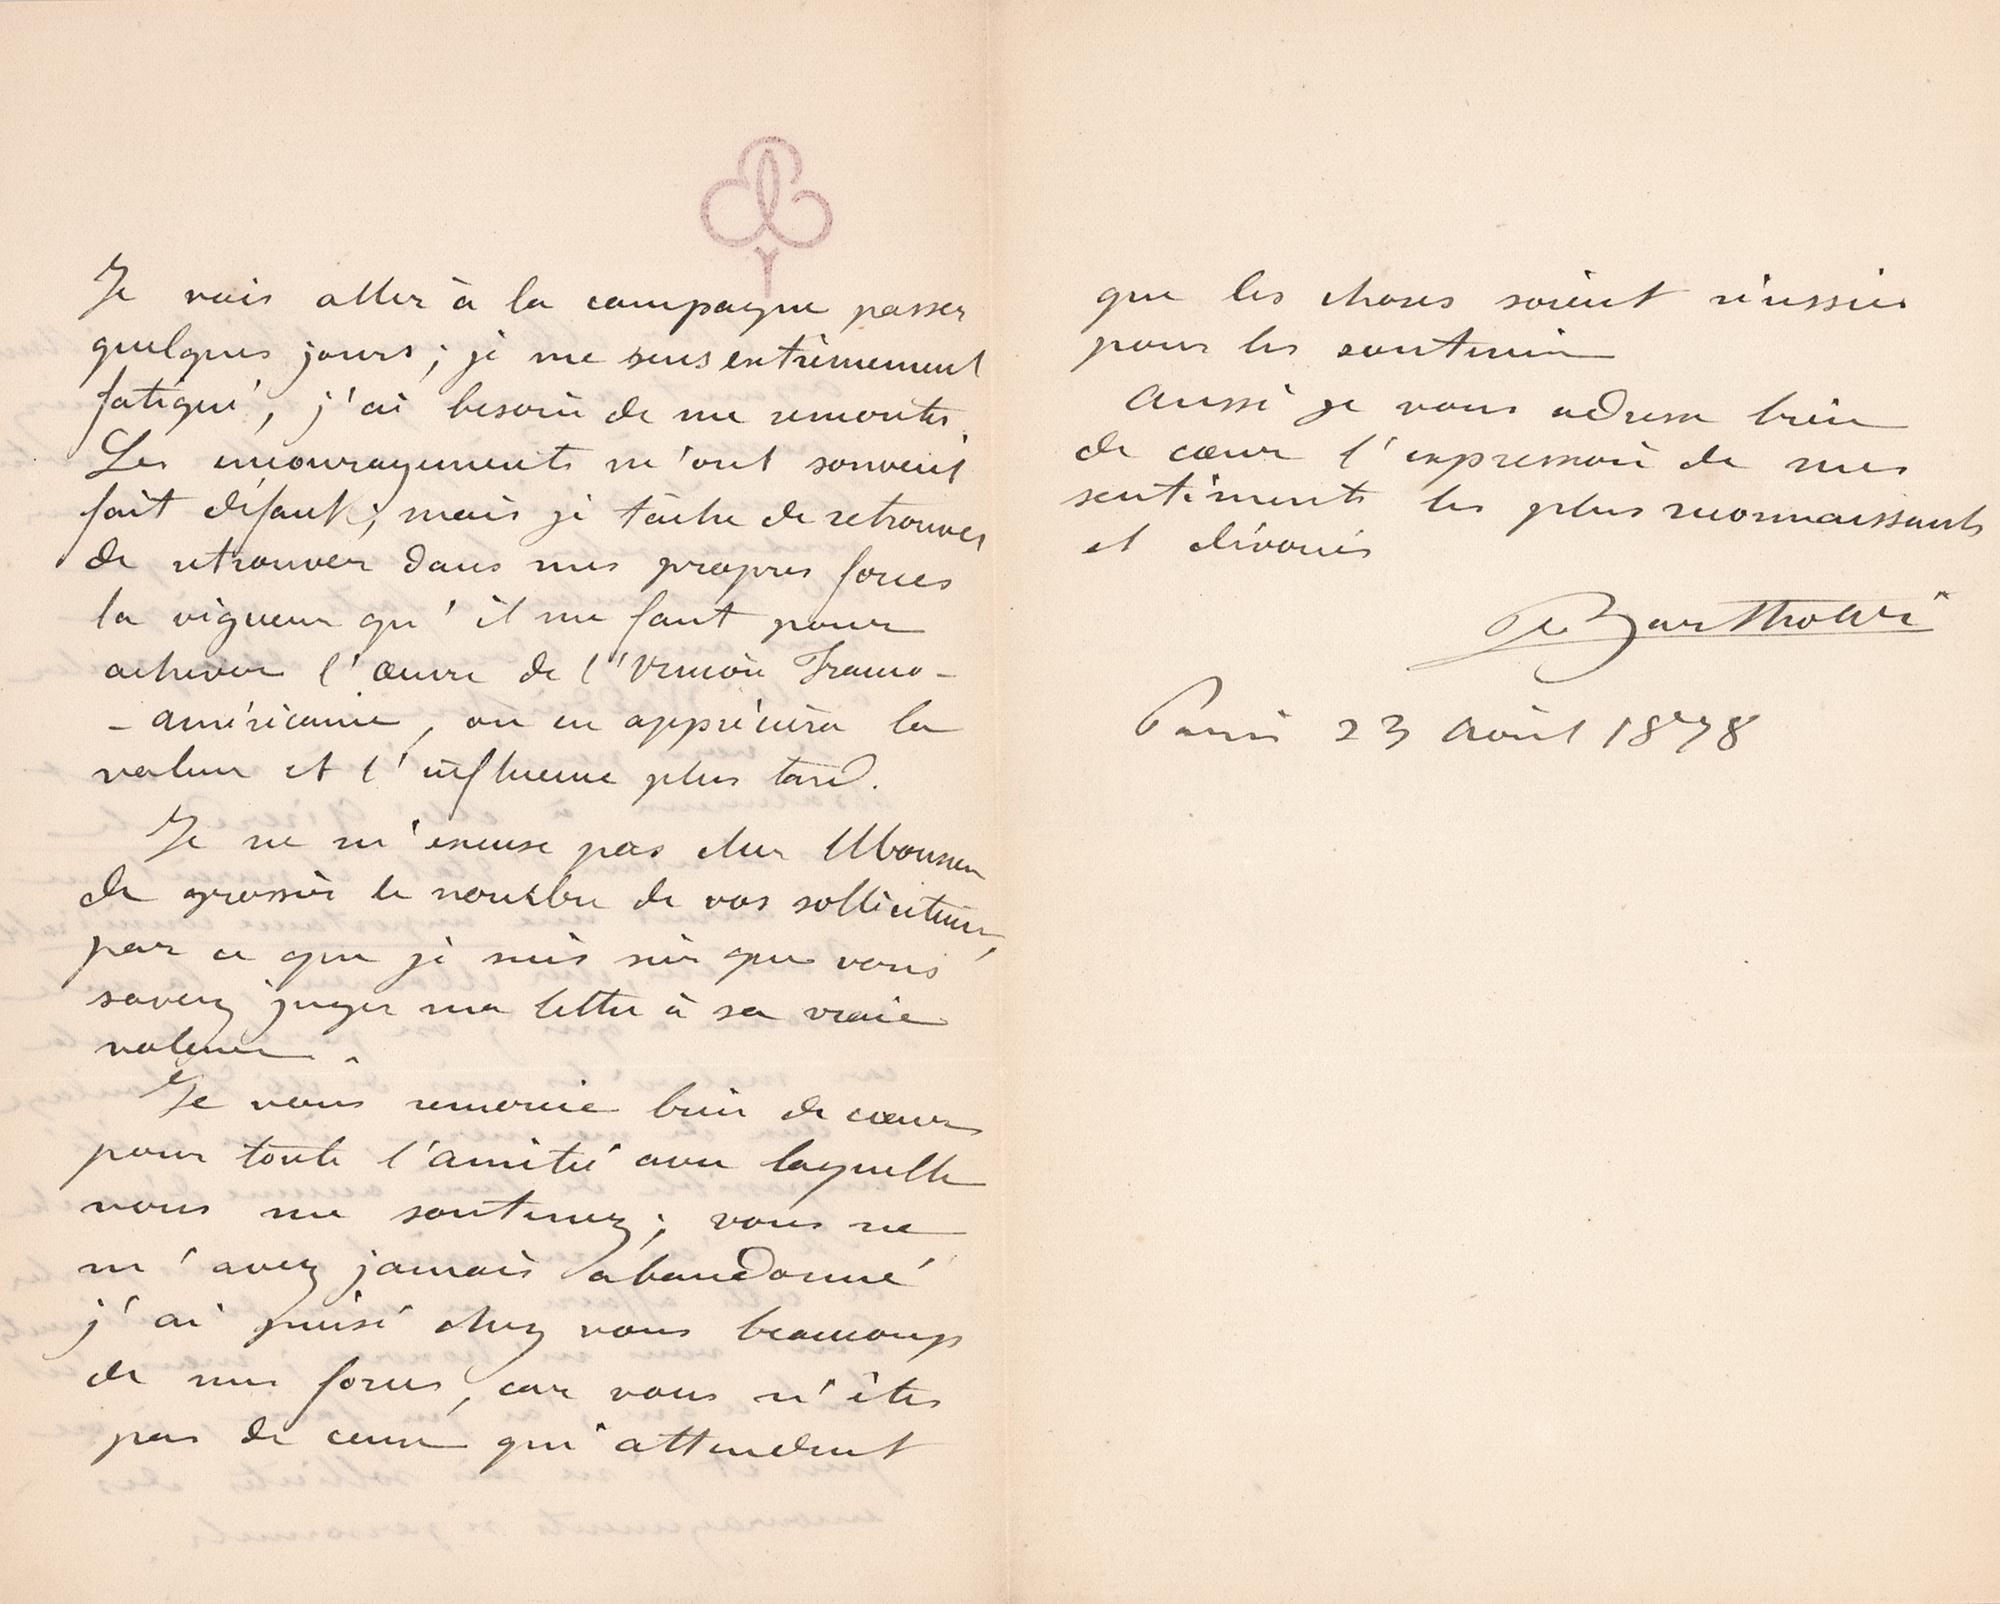 Je vais aller à la campagne passer
quelques jours; je me sens extrêmement
fatigué, j'ai besoin de me remonter.
Les encouragements m'ont souvent
fait défaut; mais je tâche de retrouver
de retrouver dans mes propres forces
la vigueur qu'il me faut pour
achever l'œuvre de l'Union Franco-
-américaine, on en appréciera la
valeur et l'influence plus tard.
Je ne m'excuse pas cher Monsieur
de grossir le nombre de vos solliciteurs,
par ce que je suis sûr que vous
savez juger ma lettre à sa vraie
valeur.
Je vous remercie bien de cœur
pour toute l'amitié avec laquelle
vous me soutenez; vous ne
m'avez jamais abandonné
j'ai puisé chez vous beaucoup
de mes forces, car vous n'êtes
pas de ceux qui attendent
que les choses soient réussies
pour les soutenir
Aussi je vous adresse bien
de cœur l'expression de mes
sentiments les plus reconnaissants
et dévoués
Bartholdi
Paris 23 Août 1878